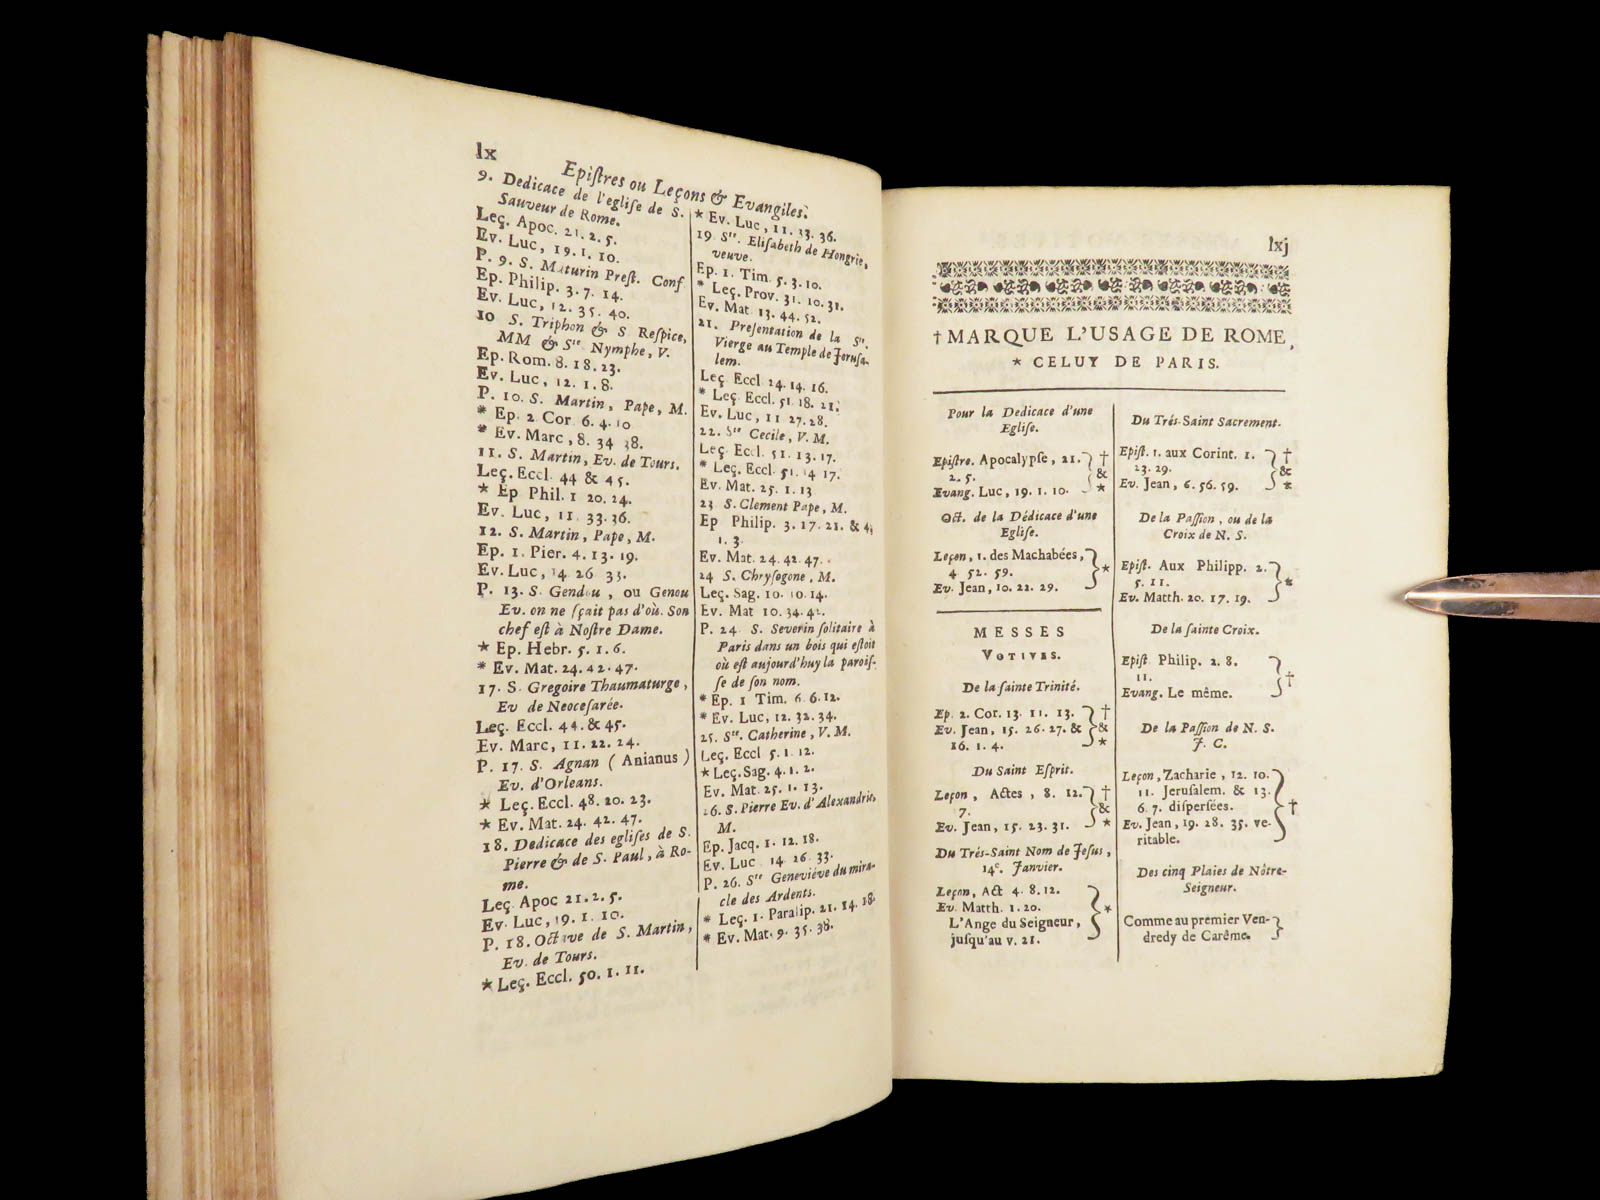 lx
Epiſtres ou Leçons & Evangiles.
9. Dedicace de l'egliſe de S.
Sauveur de Rome.
Leç. Apoc. 21. 2. 5.
Ev. Luc, 19. 1. 10.
P. 9. S. Maturin Preſt. Conf
Ep. Philip. 3. 7. 14.
Ev. Luc, 12. 35. 40.
10 S. Triphon & S Reſpice,
MM & Ste Nymphe, V.
Ep. Rom. 8. 18. 23.
Ev. Luc, 12. 1. 8.
P. 10. S. Martin, Pape, M.
* Ep. 2 Cor. 6. 4. 10
* Ev. Marc, 8. 34 38.
11. S. Martin, Ev. de Tours.
Leç. Eccl. 44 & 45.
* Ep Phil. 1 20. 24.
Ev. Luc, 11. 33. 36.
12. S. Martin, Pape, M.
Ep. 1. Pier. 4. 13. 19.
Ev. Luc, 14 26 33.
P. 13. S. Gendou, ou Genou
Ev. on ne ſçait pas d'où. Son
chef eſt à Noſtre Dame.
* Ep. Hebr. 5. 1. 6.
* Ev. Mat. 24. 42. 47.
17. S. Gregoire Thaumaturge,
Ev de Neoceſarée.
Leç. Eccl. 44. & 45.
Ev. Marc, 11. 22. 24.
P. 17. S. Agnan ( Anianus )
Ev. d'Orleans.
* Leç. Eccl. 48. 20. 23.
* Ev. Mat. 24. 42. 47.
18. Dedicace des egliſes de S.
Pierre & de S. Paul, à Ro-
me.
Leç. Apoc 21. 2. 5.
Ev. Luc, 19. 1. 10.
P. 18. Octave de S. Martin,
Ev. de Tours.
* Leç. Eccl. 50. 1. 11.
* Ev. Luc, 11. 33. 36.
19 Ste. Eliſabeth de Hongrie,
veuve.
Ep. 1. Tim. 5. 3. 10.
* Leç. Prov. 31. 10. 31.
Ev. Mat. 13. 44. 52.
21. Preſentation de la Ste.
Vierge au Temple de Jeruſa-
lem.
Leç Eccl 24. 14. 16.
* Leç. Eccl. 51. 18. 21.
Ev. Luc, 11 27. 28.
22. Ste Cecile, V. M.
Leç. Eccl. 51. 13. 17.
* Leç. Eccl. 51. 14 17.
Ev. Mat. 25. 1. 13
23 S. Clement Pape, M.
Ep Philip. 3. 17. 21. & 4.
1. 3.
Ev. Mat. 24. 42. 47.
24 S. Chryſogone, M.
Leç. Sag. 10. 10. 14.
Ev. Mat 10. 34. 42.
P. 24 S. Severin ſolitaire à
Paris dans un bois qui eſtoit
où eſt aujourd'huy la paroiſ-
ſe de ſon nom.
* Ep. 1 Tim. 6 6. 12.
* Ev. Luc, 12. 32. 34.
25. Ste. Catherine, V. M.
Leç. Eccl 51. 12.
* Leç. Sag. 4. 1. 2.
Ev. Mat. 25. 1. 13.
26. S. Pierre Ev. d'Alexandrie,
M.
Ep. Jacq. 1. 12. 18.
Ev. Luc 14 26. 33.
P. 26. Ste Geneviéve du mira-
cle des Ardents.
* Leç. 1. Paralip. 21. 14. 18.
* Ev. Mat. 9. 35. 38.
lxj
† MARQUE L'USAGE DE ROME,
* CELUY DE PARIS.
Pour la Dedicace d'une
Egliſe.
Epiſtre. Apocalypſe, 21. †
2. 5. &
Evang. Luc, 19. 1. 10. *
Oct. de la Dédicace d'une
Egliſe.
Leçon, 1. des Machabées,
4 52. 59. *
Ev. Jean, 10. 22. 29.
MESSES
VOTIVES.
De la ſainte Trinité.
Ep. 2. Cor. 13. 11. 13. †
Ev. Jean, 15. 26. 27. & &
16. 1. 4. *
Du Saint Eſprit.
Leçon, Actes, 8. 12. †
7. &
Ev. Jean, 15. 23. 31. *
Du Trés-Saint Nom de Jeſus,
14e. Janvier.
Leçon, Act 4. 8. 12.
Ev. Matth. 1. 20. *
L'Ange du Seigneur,
juſqu'au v. 21.
Du Trés-Saint Sacrement.
Epiſt. 1. aux Corint. 1. †
23. 29. &
Ev. Jean, 6. 56. 59. *
De la Paſſion, ou de la
Croix de N. S.
Epiſt. Aux Philipp. 2.
5. 11. *
Ev. Matth. 20. 17. 19.
De la ſainte Croix.
Epiſt Philip. 2. 8.
11. †
Evang. Le même.
De la Paſſion de N. S.
J. C.
Leçon, Zacharie, 12. 10.
11. Jeruſalem. & 13.
6. 7. diſperſées. †
Ev. Jean, 19. 28. 35. ve-
ritable.
Des cinq Plaies de Nôtre-
Seigneur.
Comme au premier Ven-
dredy de Carême.